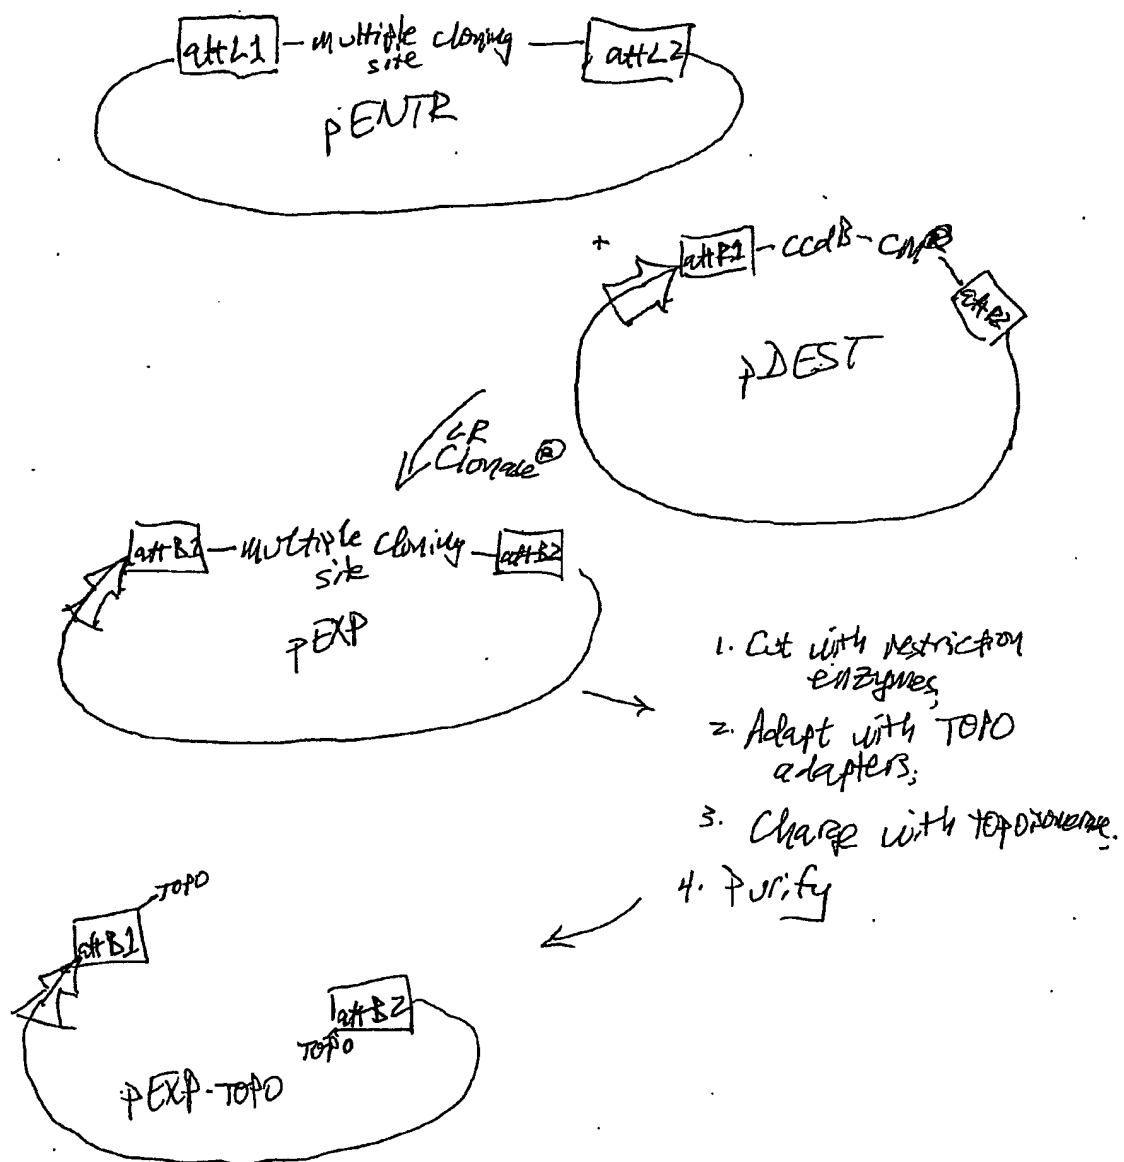 attL1 - multiple cloning - attL2
site
pENTR
+
attR1 - ccdB - CMR
attR2
pDEST
LR
Clonase®
attB1 - multiple cloning - attB2
site
pEXP
1. Cut with restriction
enzymes;
2. Adapt with TOPO
adapters;
3. Charge with topoisomerase.
4. Purify
TOPO
attB1
attB2
TOPO
pEXP-TOPO